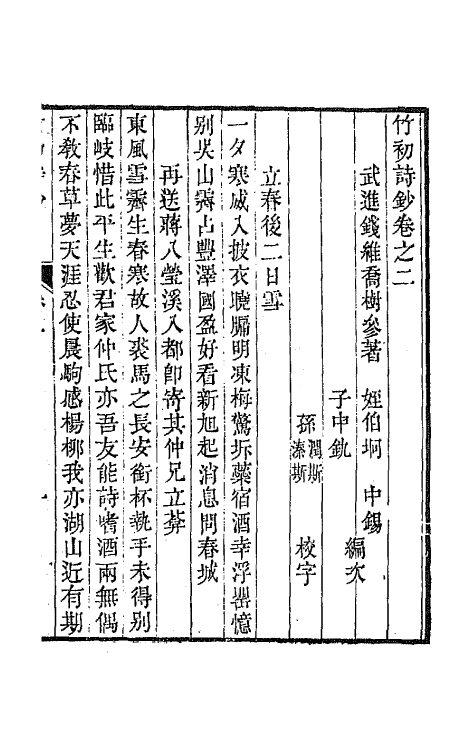 竹初詩鈔卷之二
武進錢維喬樹參著 姪伯坰 中錫 編次
子中鈗
孫 潤斯 溱斯 校字
立春後二日雪
一夕寒威入披衣曉牖明凍梅驚坼蘂宿酒幸浮罌憶
別吳山霽占豐澤國盈好看新旭起消息問春城
再送蔣八瑩溪入都卽寄其仲兄立葊
東風雪霽生春寒故人裘馬之長安銜杯執手未得別
臨岐惜此平生歡君家仲氏亦吾友能詩嗜酒兩無偶
不敎春草夢天涯忍使晨駒感楊柳我亦湖山近有期